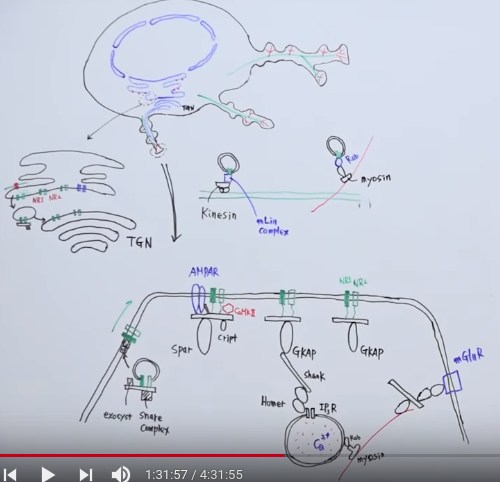 TGN
NR1 NR2
TGN
Kinesin
mLin
complex
Rab
myosin
AMPAR
CaMKII
Spar
cript
NR1 NR2
GKAP
GKAP
Shank
Homer
IP3R
Ca2+
Rab
myosin
mGluR
exocyst Snare
Complex
1:31:57 / 4:31:55